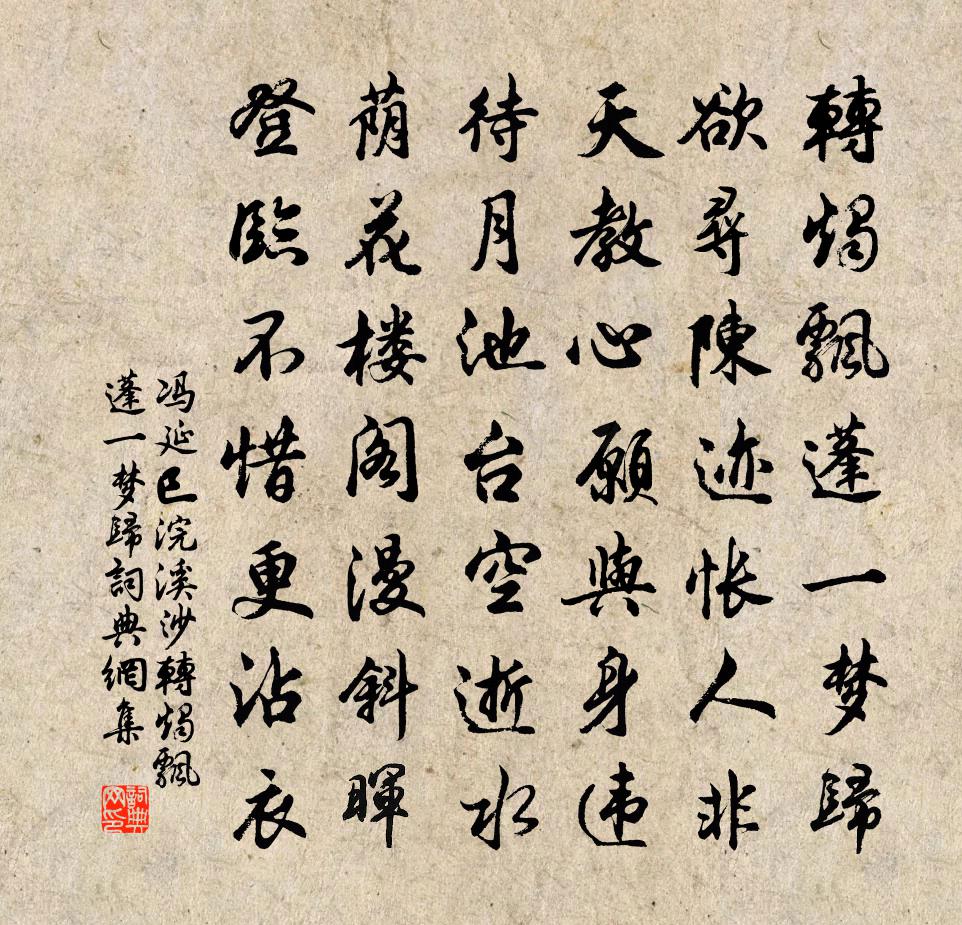 轉燭飄蓬一梦歸
欲尋陳迹悵人非
天教心願與身違
待月池台空逝水
荫花楼阁漫斜暉
登臨不惜更沾衣
冯延巳浣溪沙轉燭飄
蓬一梦歸詞典網集
詞典网印